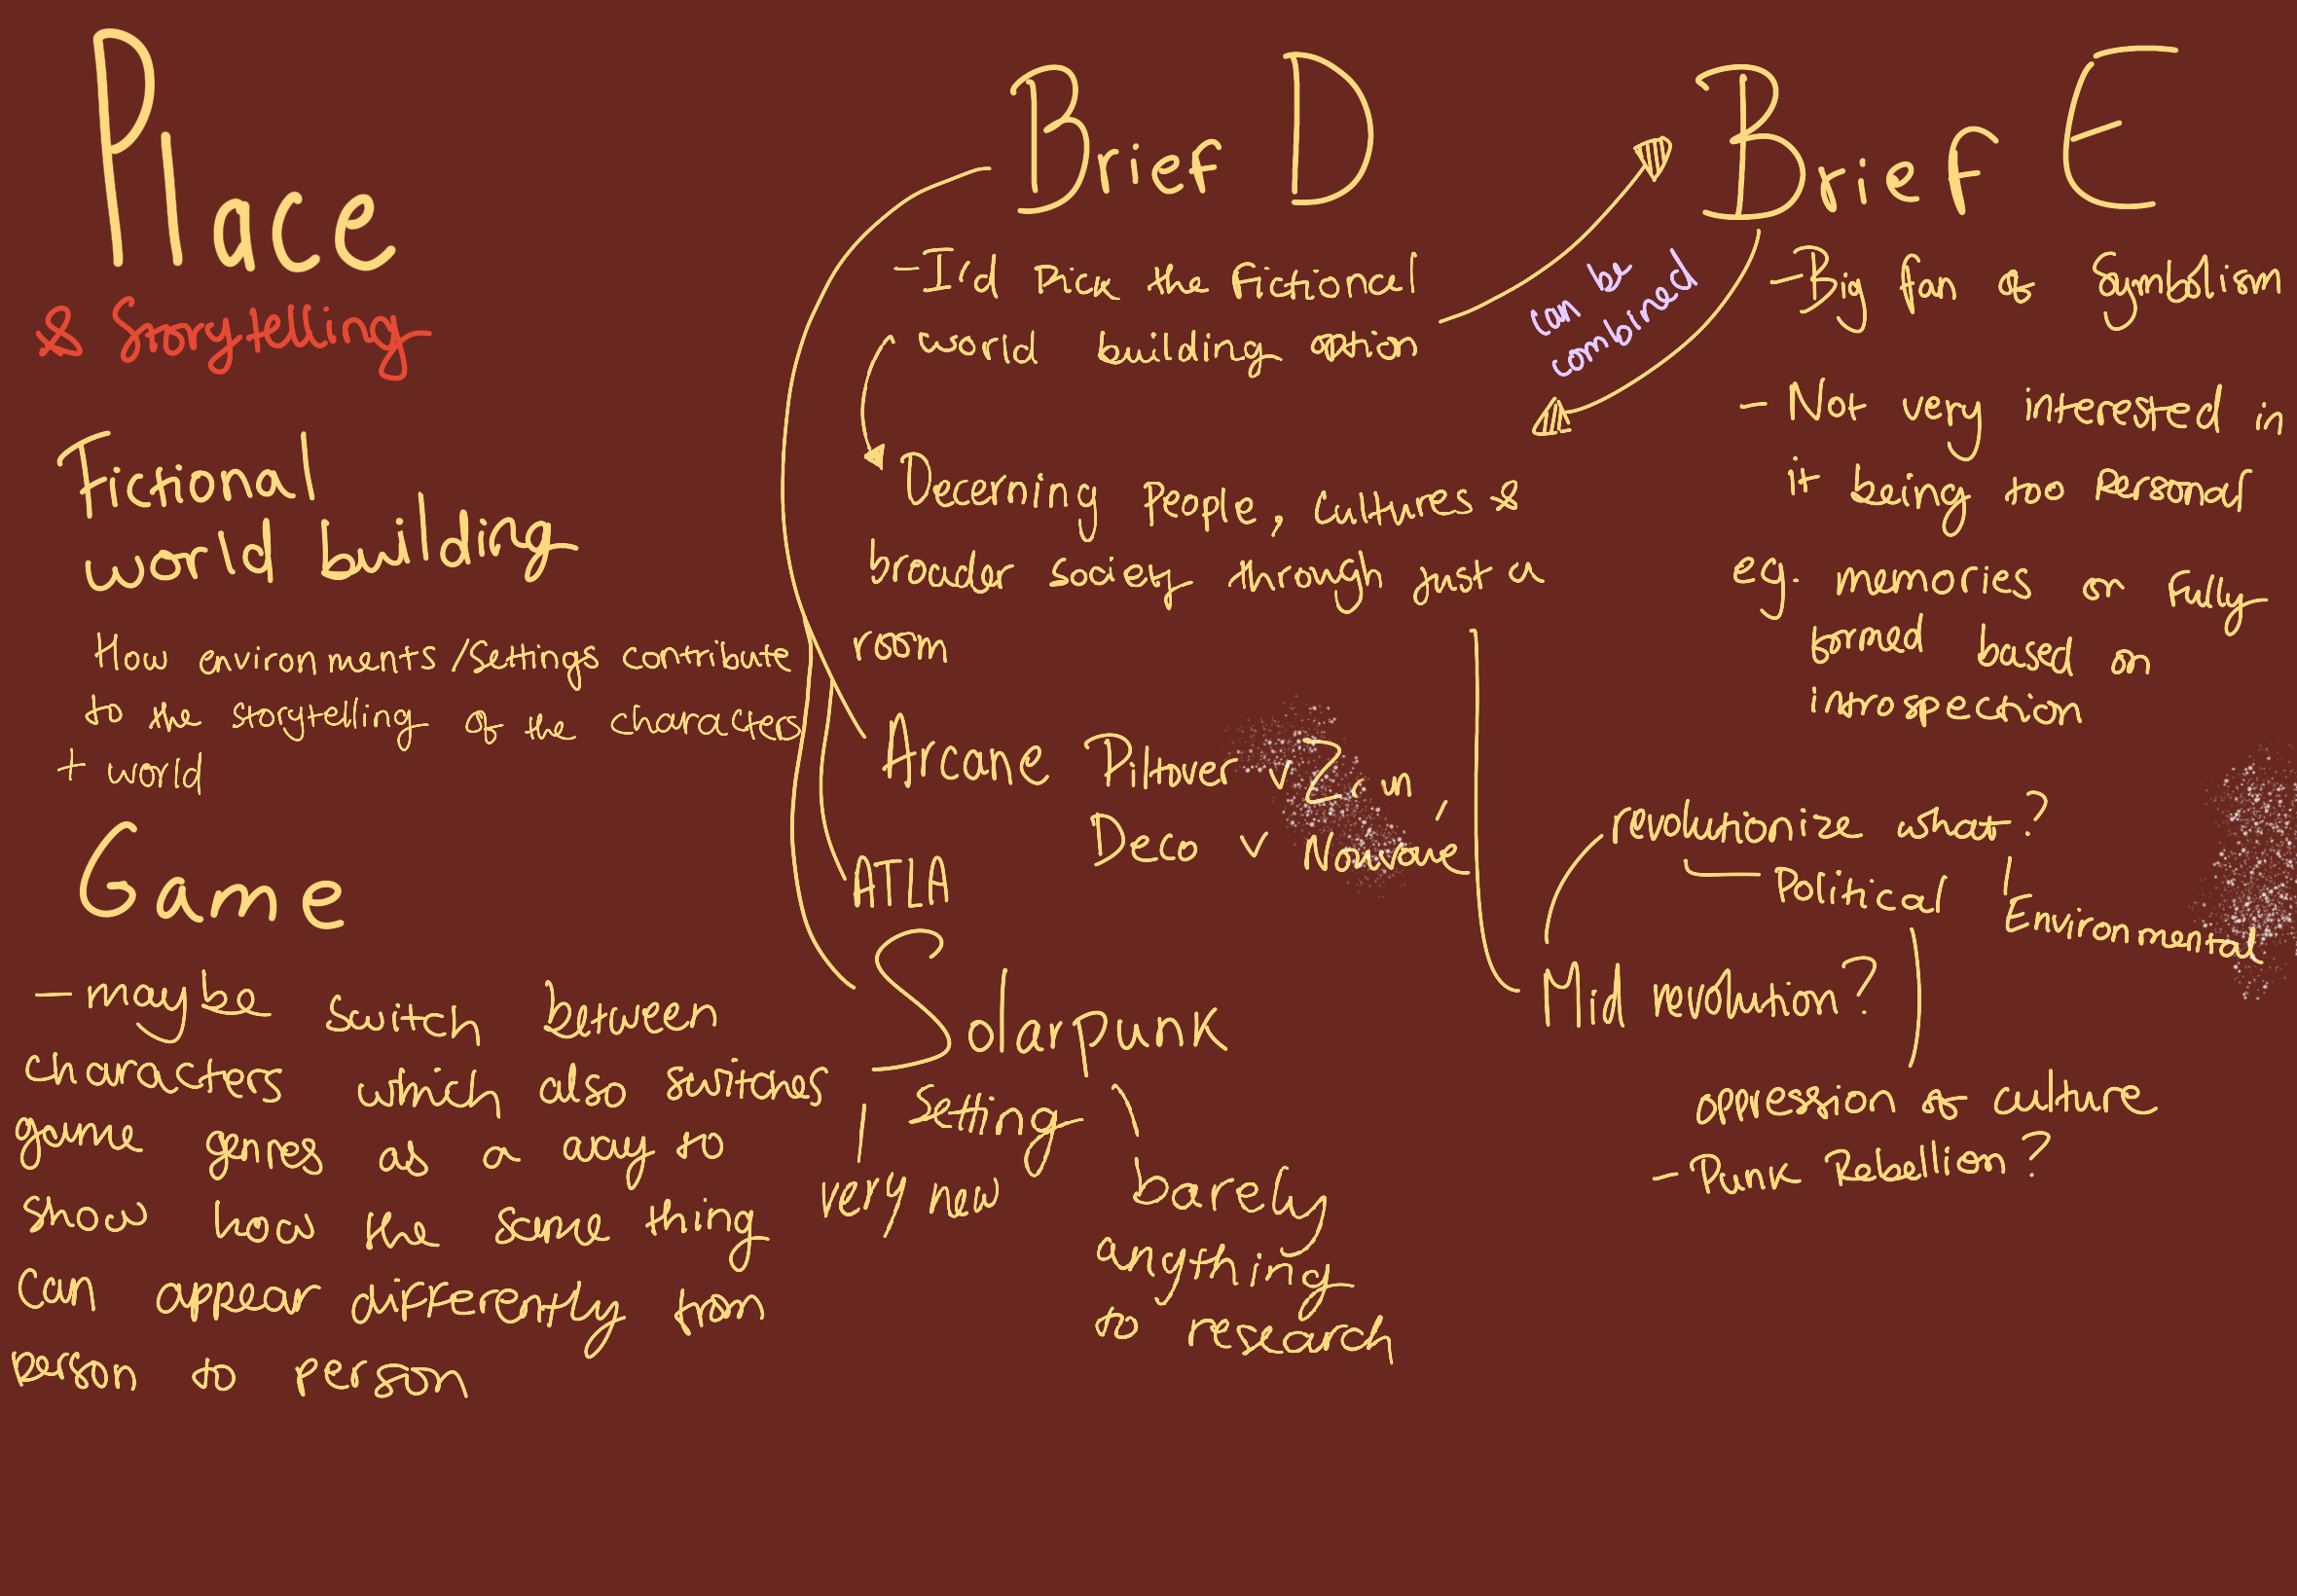 Place
& Storytelling
Fictional
world building
How environments/settings contribute
to the storytelling of the characters
+ world
Game
- maybe switch between
characters which also switches
game genres as a way to
show how the same thing
can appear differently from
person to person
Brief D
- I'd pick the fictional
world building option
Decerning people, cultures &
broader society through just a
room
Arcane Piltover v Zaun
Deco v Nouvoué
ATLA
Solarpunk
setting
very new
barely
anything
to research
can be
combined
Brief E
- Big fan of symbolism
- Not very interested in
it being too personal
eg. memories or fully
formed based on
introspection
revolutionize what?
Political
Environmental
Mid revolution?
oppression of culture
- Punk Rebellion?